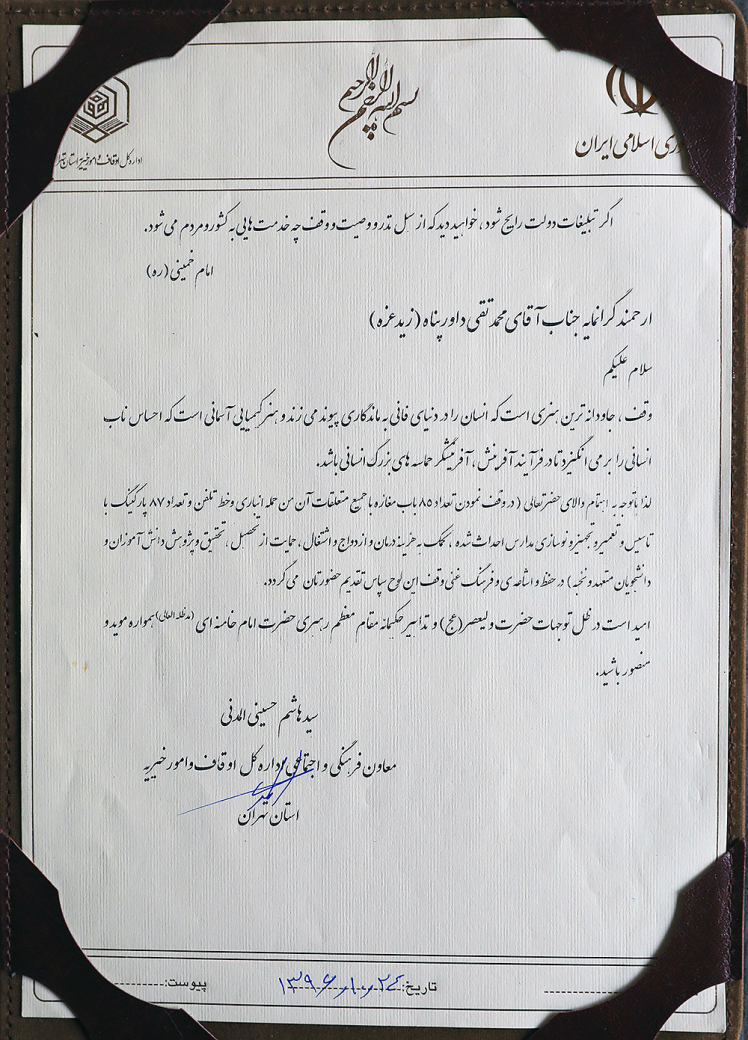 بسم الله الرحمن الرحیم
ری اسلامی ایران
اداره کل اوقاف و امور خیریه استان
اگر تبلیغات دولت رایج شود، خواهید دید که از سل نذر و وصیت و وقف چه خدمت هایی به کشور و مردم می شود.
امام خمینی (ره)
ارجمند گرانمایه جناب آقای محمدتقی داورپناه (زید عزه)
سلام علیکم
وقف، جاودانه ترین هنری است که انسان را در دنیای فانی به ماندگاری پیوند می زند و هنر کیمیایی آسمانی است که احساس ناب
انسانی را بر می انگیزد تا در فرآیند آفرینش، آفرینشگر حماسه های بزرگ انسانی باشد.
لذا باتوجه به اهتمام والای حضرتعالی ( در وقف نمودن تعداد ۸۵ باب مغازه با جمیع متعلقات آن من جمله انباری و خط تلفن و تعداد ۸۷ پارکینگ با
تاسیس و تعمیر و تجهیز و نوسازی مدارس احداث شده ، کمک به هزینه درمان و ازدواج و اشتغال ، حمایت از تحصیل ، تحقیق و پژوهش دانش آموزان و
دانشجویان متعهد و نخبه) در حفظ و اشاعه ی و فرهنگ غنی وقف این لوح سپاس تقدیم حضورتان می گردد.
امید است در ظل توجهات حضرت ولیعصر(عج) و تدابیر حکیمانه مقام معظم رهبری حضرت امام خامنه ای (مدظله العالی) همواره موید و
منصور باشید.
سید هاشم حسینی المدنی
معاون فرهنگی و اجتماعی اداره کل اوقاف و امور خیریه
استان تهران
تاریخ: ۱۳۹۶/۱۰/۲۴
پیوست: